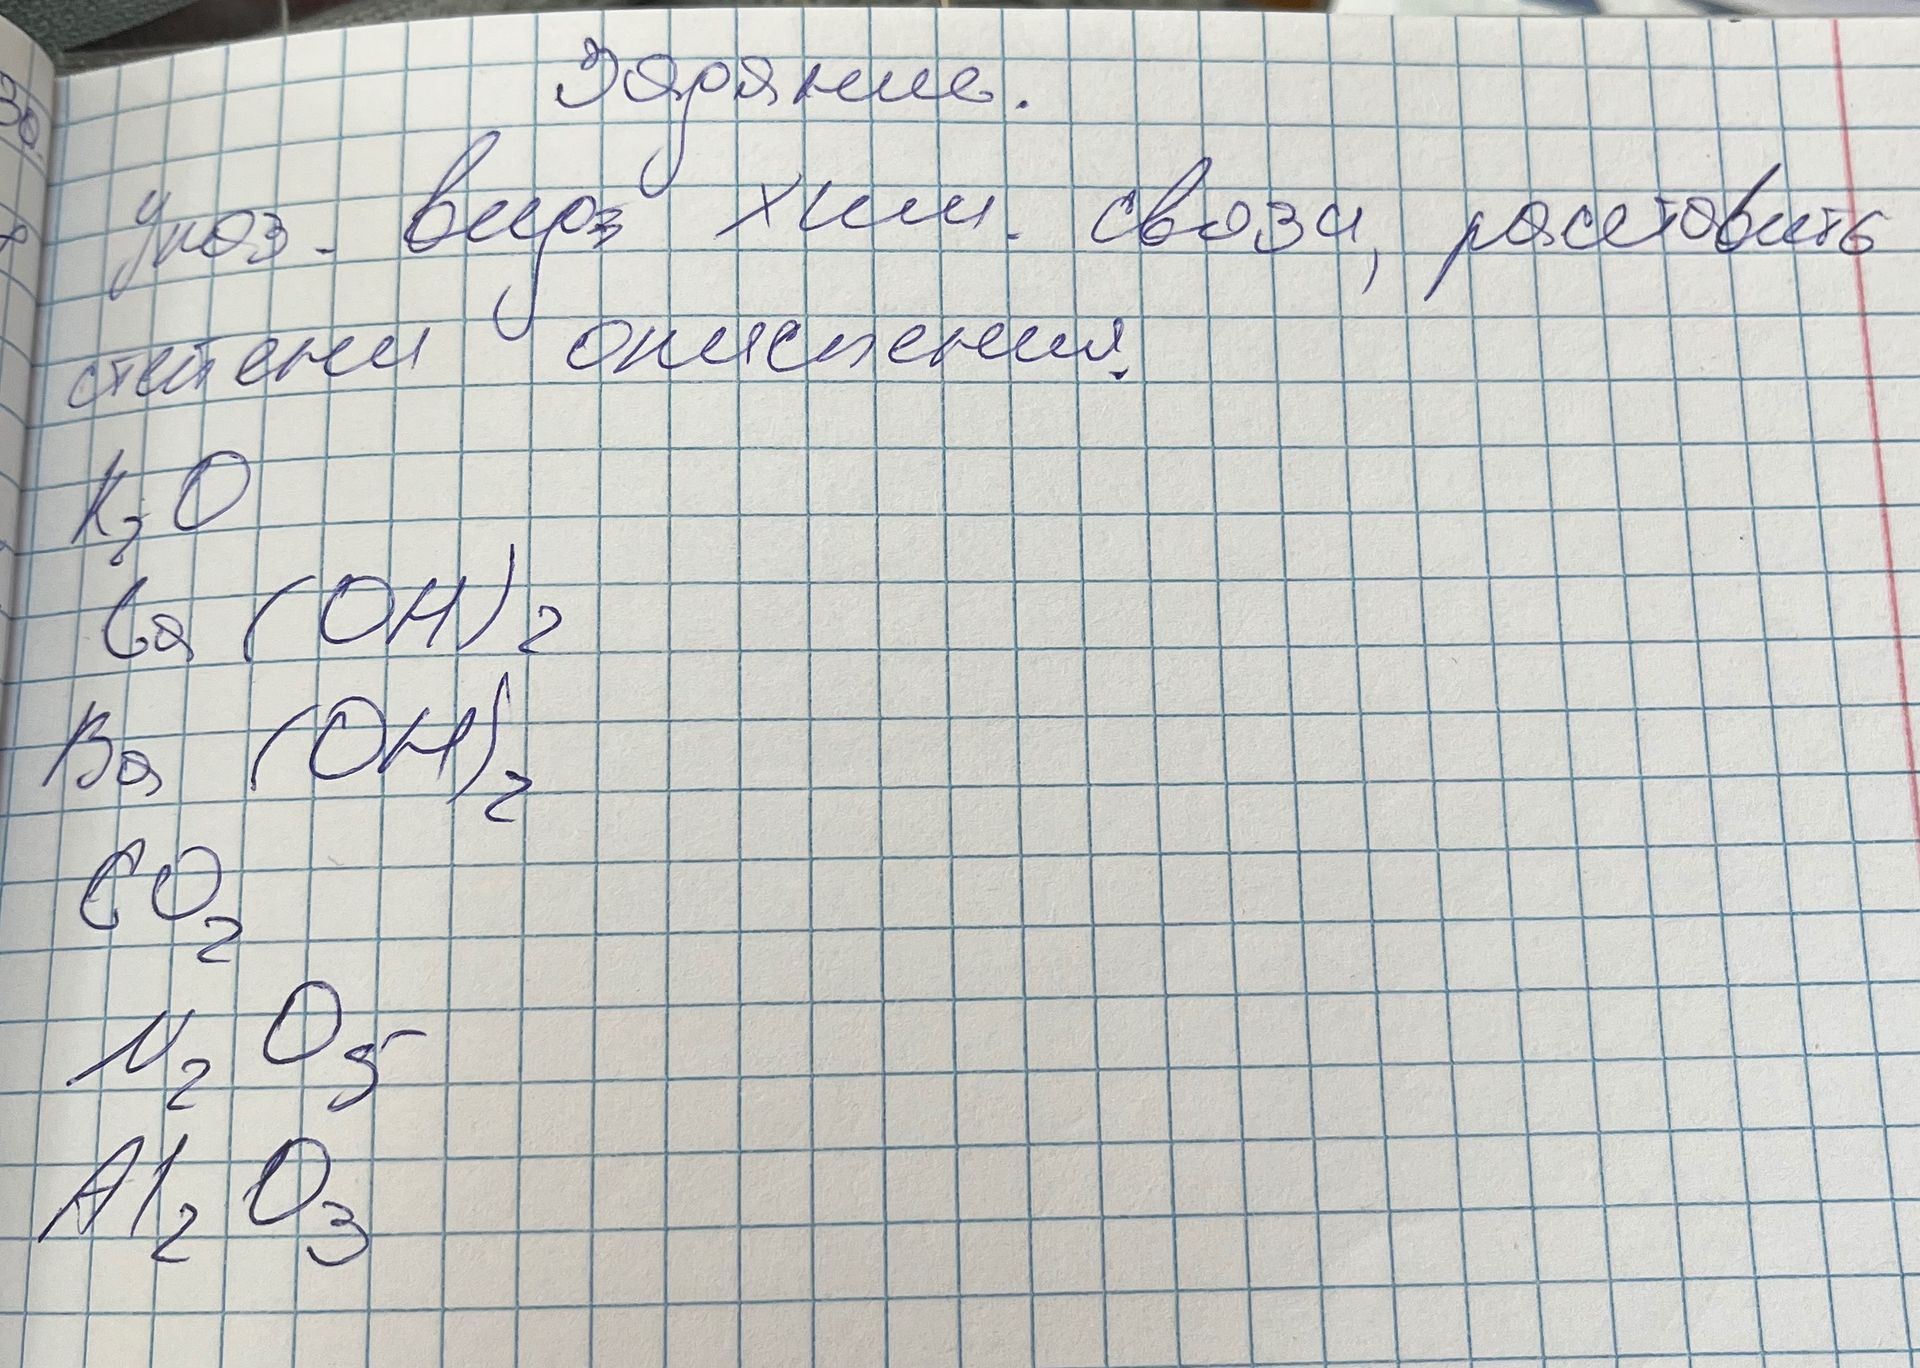 Задание.
Указ. вид хим. связи, расставить
степени окисления.
K₂O
Ca(OH)₂
Ba(OH)₂
CO₂
N₂O₅
Al₂O₃